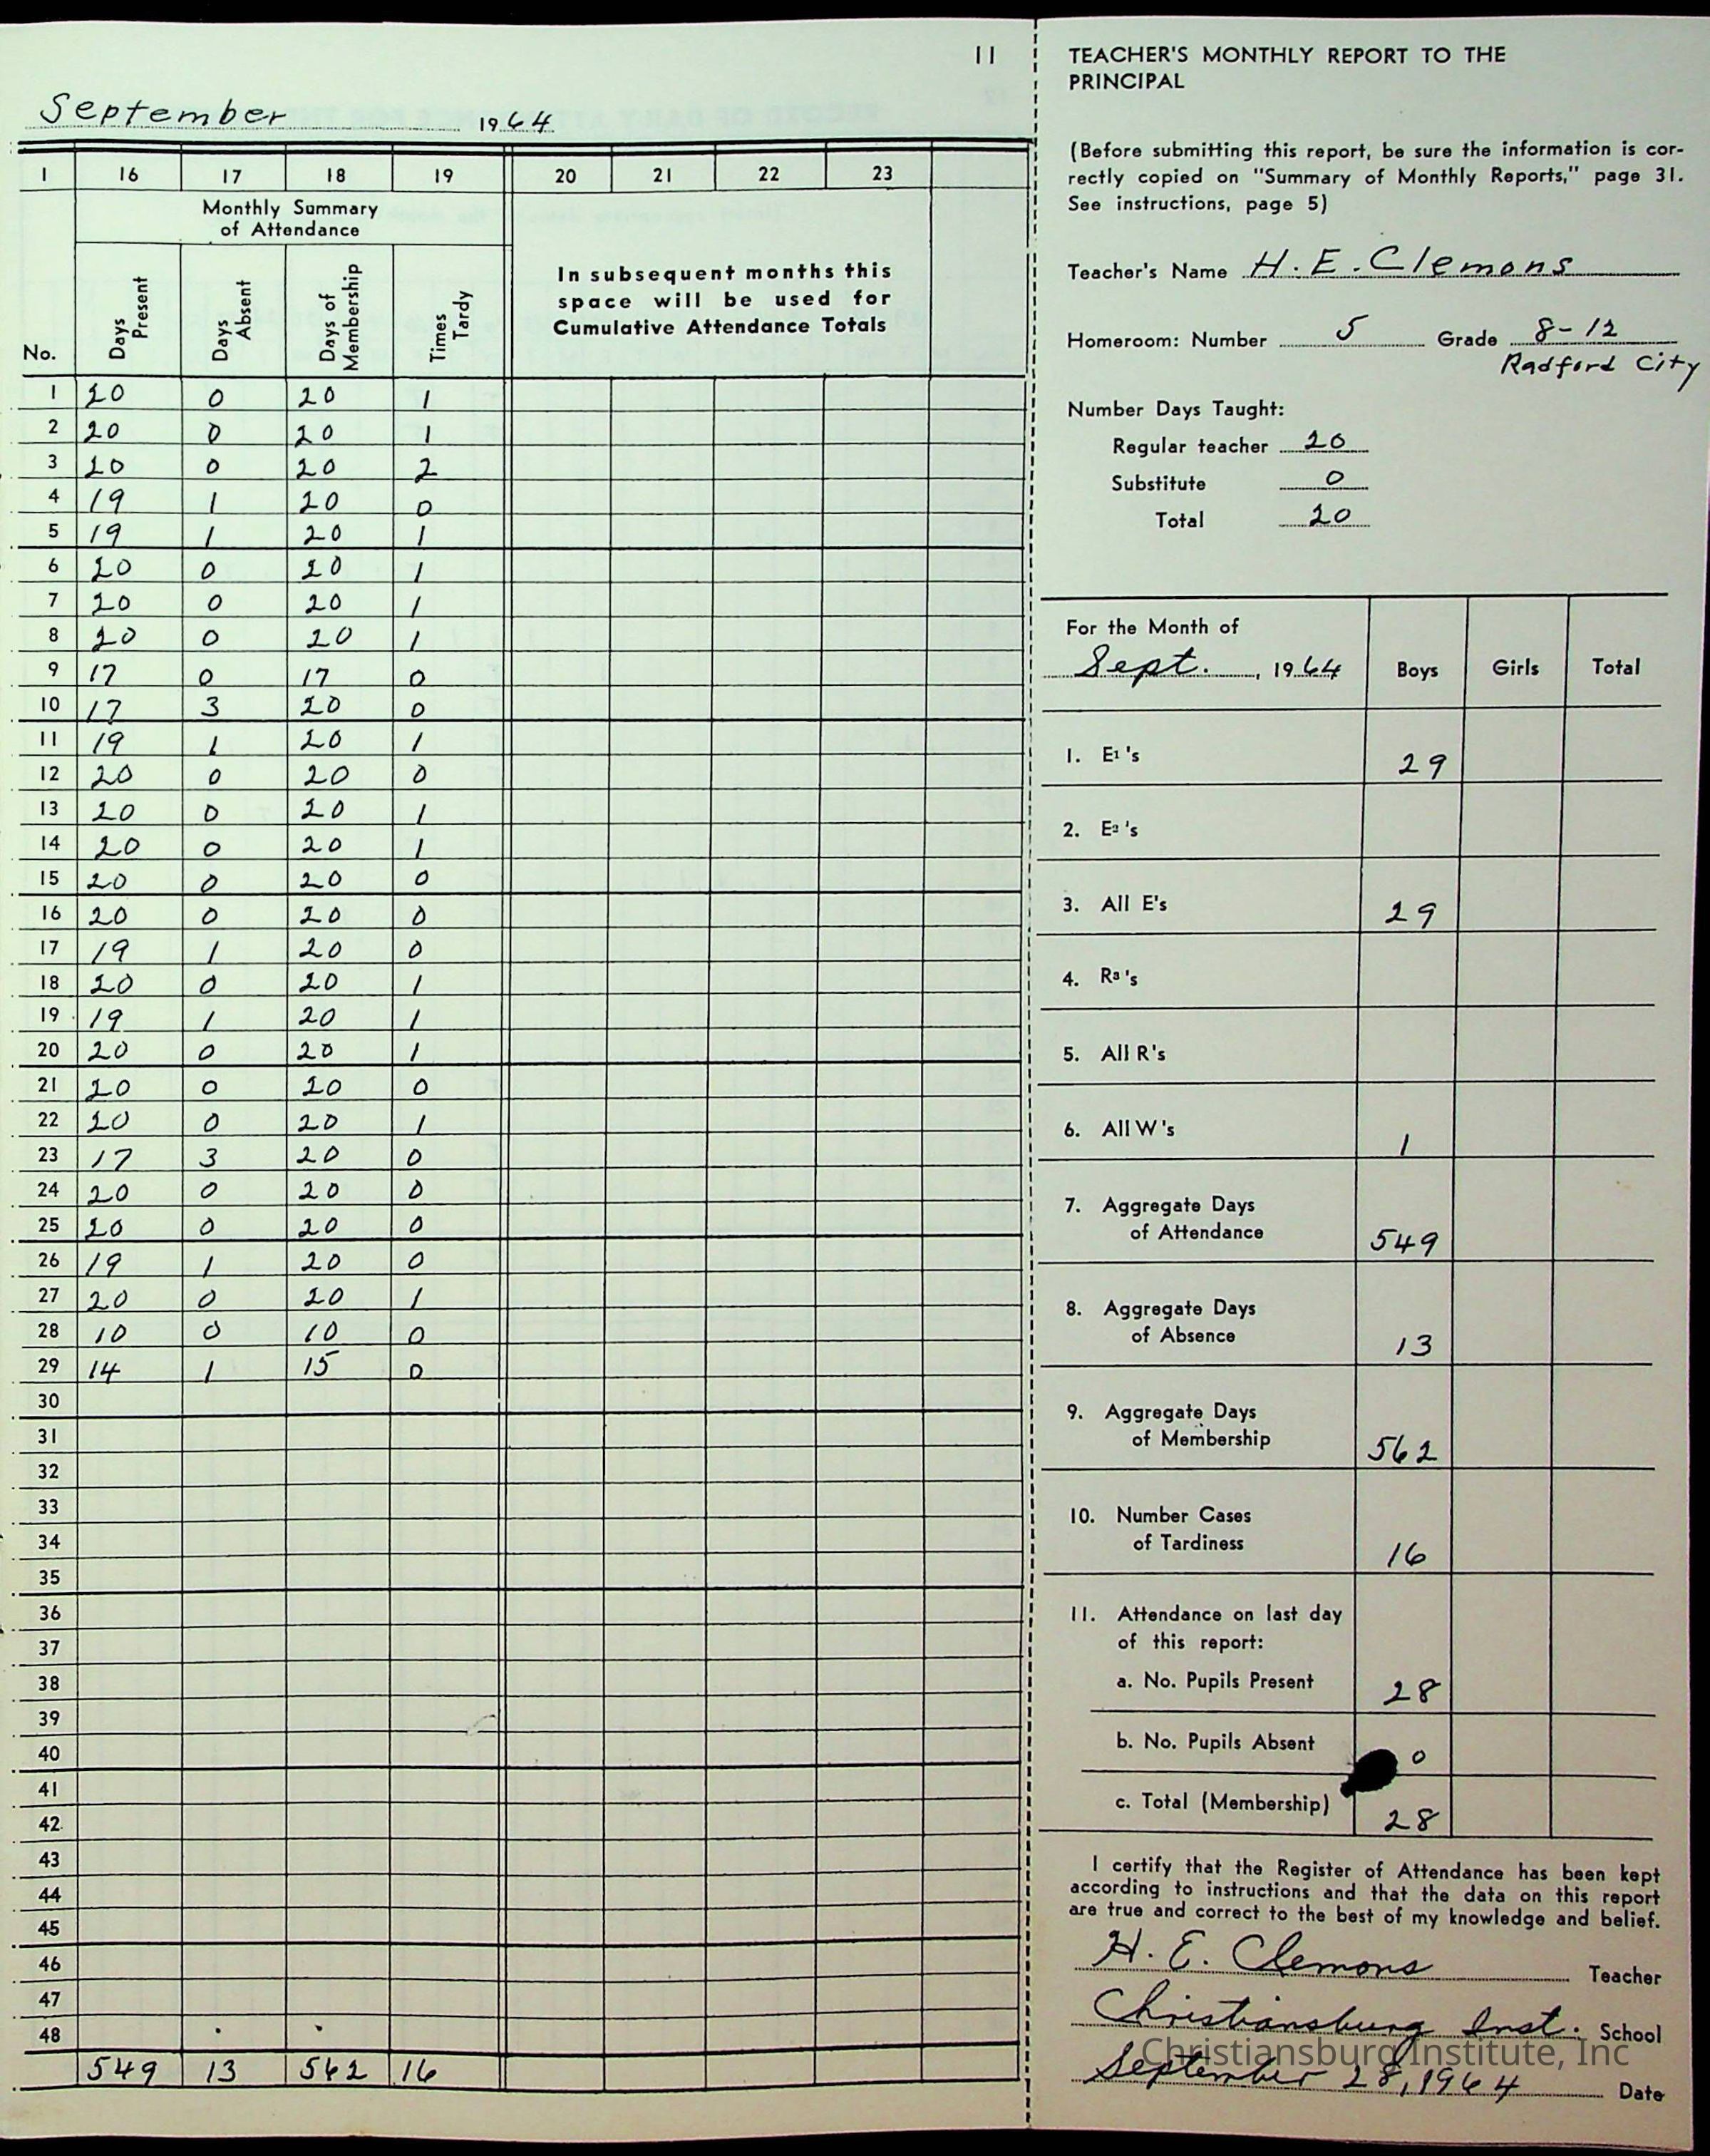 11
September 1964
1 16 17 18 19 20 21 22 23
Monthly Summary
of Attendance
No. Days Present Days Absent Days of Membership Times Tardy
In subsequent months this
space will be used for
Cumulative Attendance Totals
1 20 0 20 1
2 20 0 20 1
3 20 0 20 2
4 19 1 20 0
5 19 1 20 1
6 20 0 20 1
7 20 0 20 1
8 20 0 20 1
9 17 0 17 0
10 17 3 20 0
11 19 1 20 1
12 20 0 20 0
13 20 0 20 1
14 20 0 20 1
15 20 0 20 0
16 20 0 20 0
17 19 1 20 0
18 20 0 20 1
19 19 1 20 1
20 20 0 20 1
21 20 0 20 0
22 20 0 20 1
23 17 3 20 0
24 20 0 20 0
25 20 0 20 0
26 19 1 20 0
27 20 0 20 1
28 10 0 10 0
29 14 1 15 0
30
31
32
33
34
35
36
37
38
39
40
41
42
43
44
45
46
47
48
549 13 562 16
TEACHER'S MONTHLY REPORT TO THE
PRINCIPAL
(Before submitting this report, be sure the information is cor-
rectly copied on "Summary of Monthly Reports," page 31.
See instructions, page 5)
Teacher's Name H. E. Clemons
Homeroom: Number 5 Grade 8-12
Radford City
Number Days Taught:
Regular teacher 20
Substitute 0
Total 20
For the Month of
Sept., 1964 Boys Girls Total
1. E1's 29
2. E2's
3. All E's 29
4. R3's
5. All R's
6. All W's 1
7. Aggregate Days
of Attendance 549
8. Aggregate Days
of Absence 13
9. Aggregate Days
of Membership 562
10. Number Cases
of Tardiness 16
11. Attendance on last day
of this report:
a. No. Pupils Present 28
b. No. Pupils Absent 0
c. Total (Membership) 28
I certify that the Register of Attendance has been kept
according to instructions and that the data on this report
are true and correct to the best of my knowledge and belief.
H. E. Clemons Teacher
Christiansburg Inst. School
Christiansburg Institute, Inc
September 28, 1964 Date